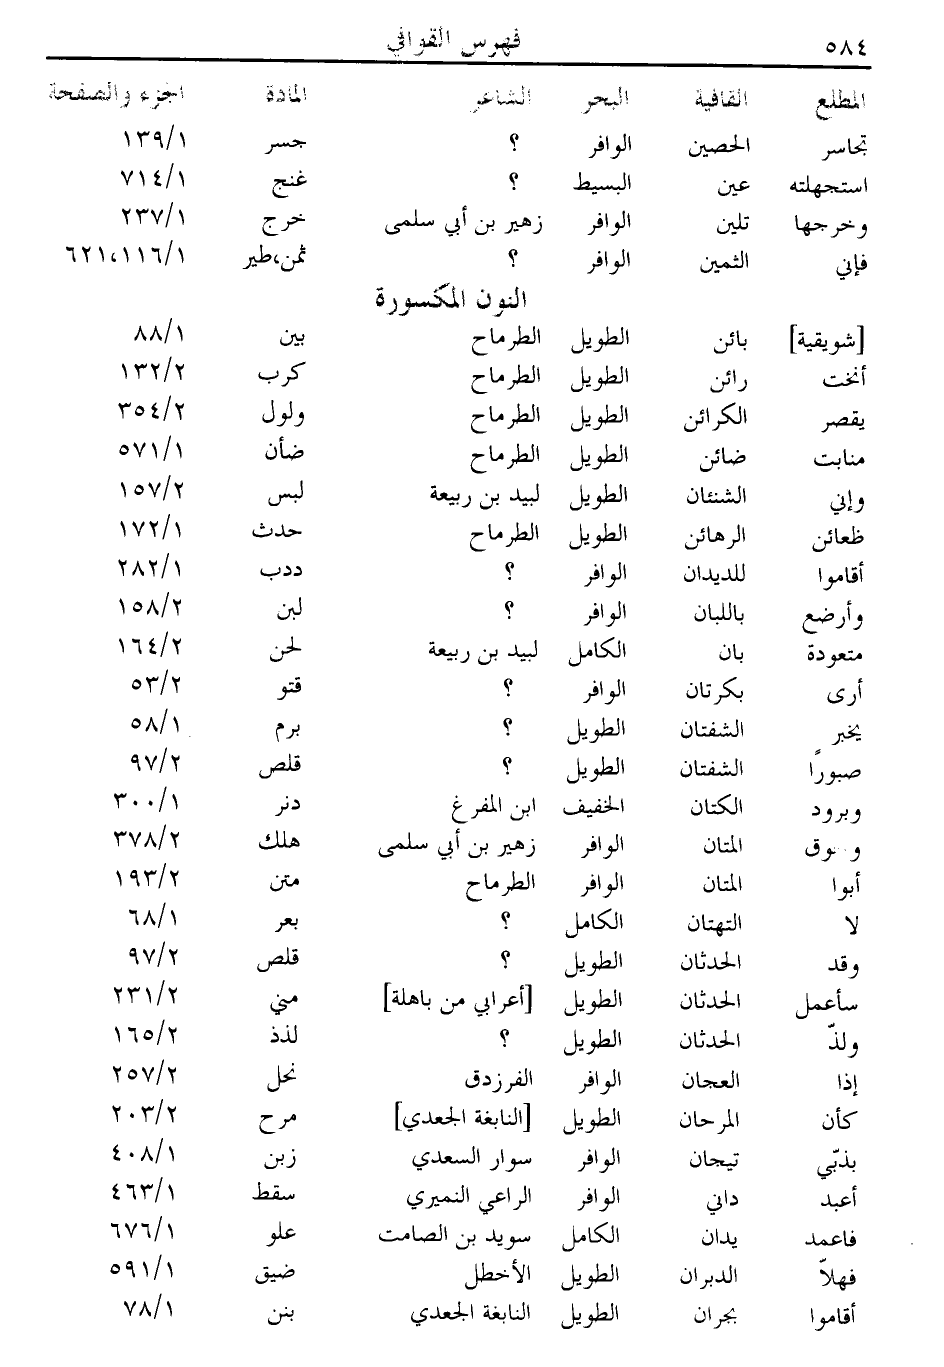 ٥٨٤ فهرس القوافي
المطلع القافية البحر الشاعر المادة الجزء والصفحة
تجاسر الحصين الوافر ؟ جسر ١٣٩/١
استجهلته عين البسيط ؟ غنج ٧١٤/١
وخرجها تلين الوافر زهير بن أبي سلمى خرج ٢٣٧/١
فإني الثمين الوافر ؟ ثمن،طير ٦٢١،١١٦/١
النون المكسورة
[شويقية] بائن الطويل الطرماح بين ٨٨/١
أنخت رائن الطويل الطرماح كرب ١٣٢/٢
يقصر الكرائن الطويل الطرماح ولول ٣٥٤/٢
منابت ضائن الطويل الطرماح ضأن ٥٧١/١
وإني الشنئان الطويل لبيد بن ربيعة لبس ١٥٧/٢
ظعائن الرهائن الطويل الطرماح حدث ١٧٢/١
أقاموا للديدان الوافر ؟ ددب ٢٨٢/١
وأرضع باللبان الوافر ؟ لبن ١٥٨/٢
متعودة بان الكامل لبيد بن ربيعة لحن ١٦٤/٢
أرى بكرتان الوافر ؟ قتو ٥٣/٢
يخبر الشفتان الطويل ؟ برم ٥٨/١
صبورًا الشفتان الطويل ؟ قلص ٩٧/٢
وبرود الكتان الخفيف ابن المفرغ دنر ٣٠٠/١
المتان الوافر زهير بن أبي سلمى هلك ٣٧٨/٢
أبوا المتان الوافر الطرماح متن ١٩٣/٢
لا التهتان الكامل ؟ بعر ٦٨/١
وقد الحدثان الطويل ؟ قلص ٩٧/٢
سأعمل الحدثان الطويل [أعرابي من باهلة] مني ٢٣١/٢
ولذّ الحدثان الطويل ؟ لذذ ١٦٥/٢
إذا العجان الوافر الفرزدق نحل ٢٥٧/٢
كأن المرحان الطويل [النابغة الجعدي] مرح ٢٠٣/٢
بذبّي تيجان الوافر سوار السعدي زبن ٤٠٨/١
أعبد داني الوافر الراعي النميري سقط ٤٦٣/١
فاعمد يدان الكامل سويد بن الصامت علو ٦٧٦/١
فهلاّ الدبران الطويل الأخطل ضيق ٥٩١/١
أقاموا بجران الطويل النابغة الجعدي بنن ٧٨/١